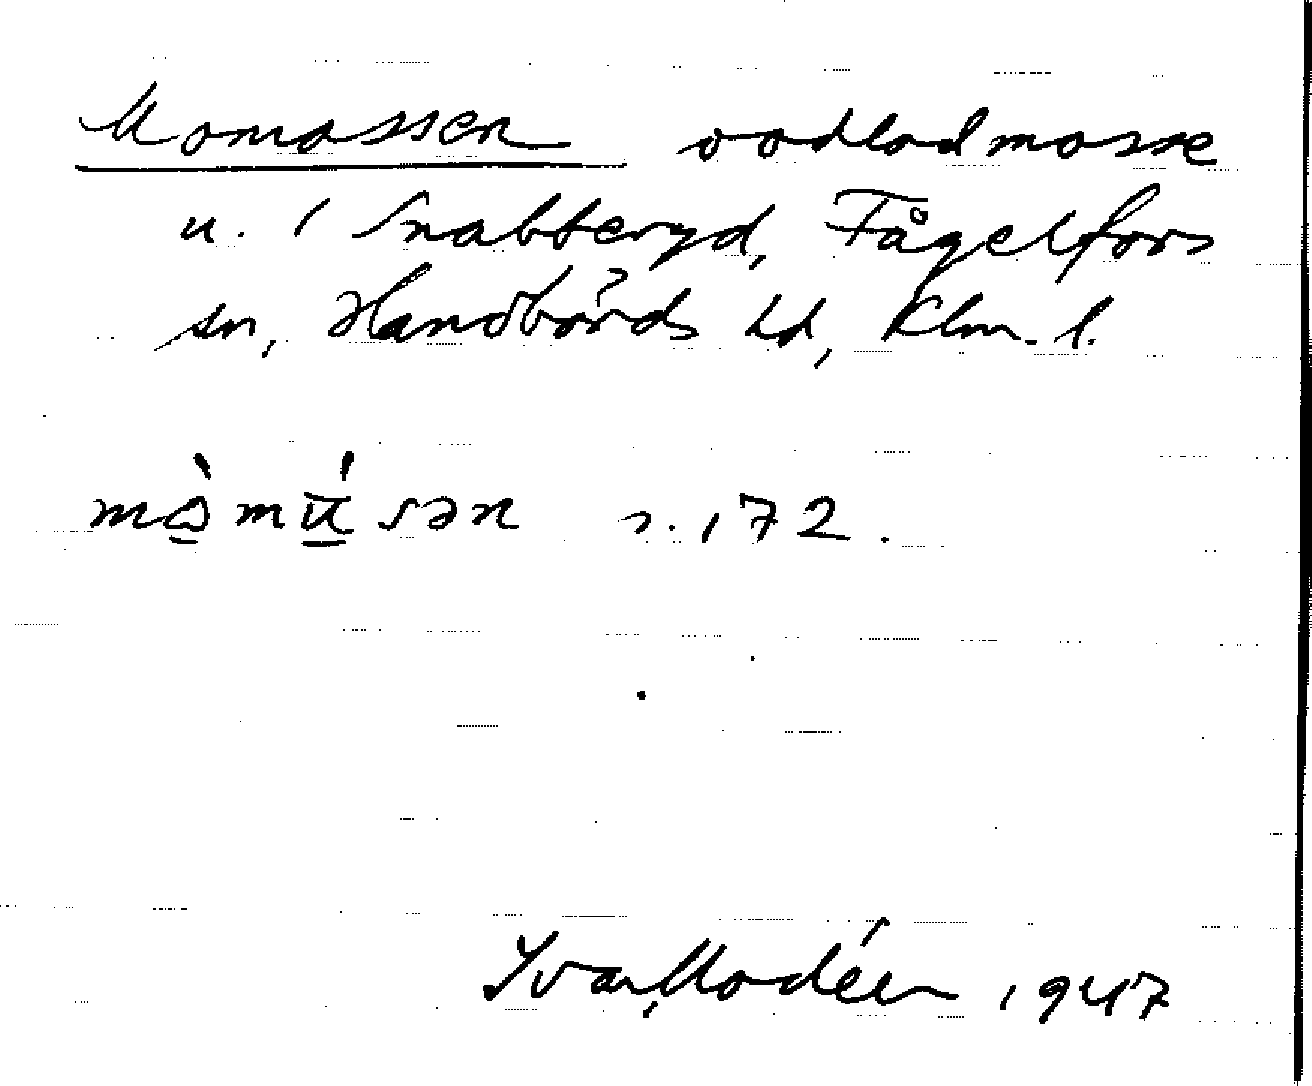 Momossen oodlad mosse
u. 1 Snabberyd, Fågelfors
sn, Handbörds hd, Klm. l.
mὼmú̱sən s. 172.
Ivar Modéer 1947